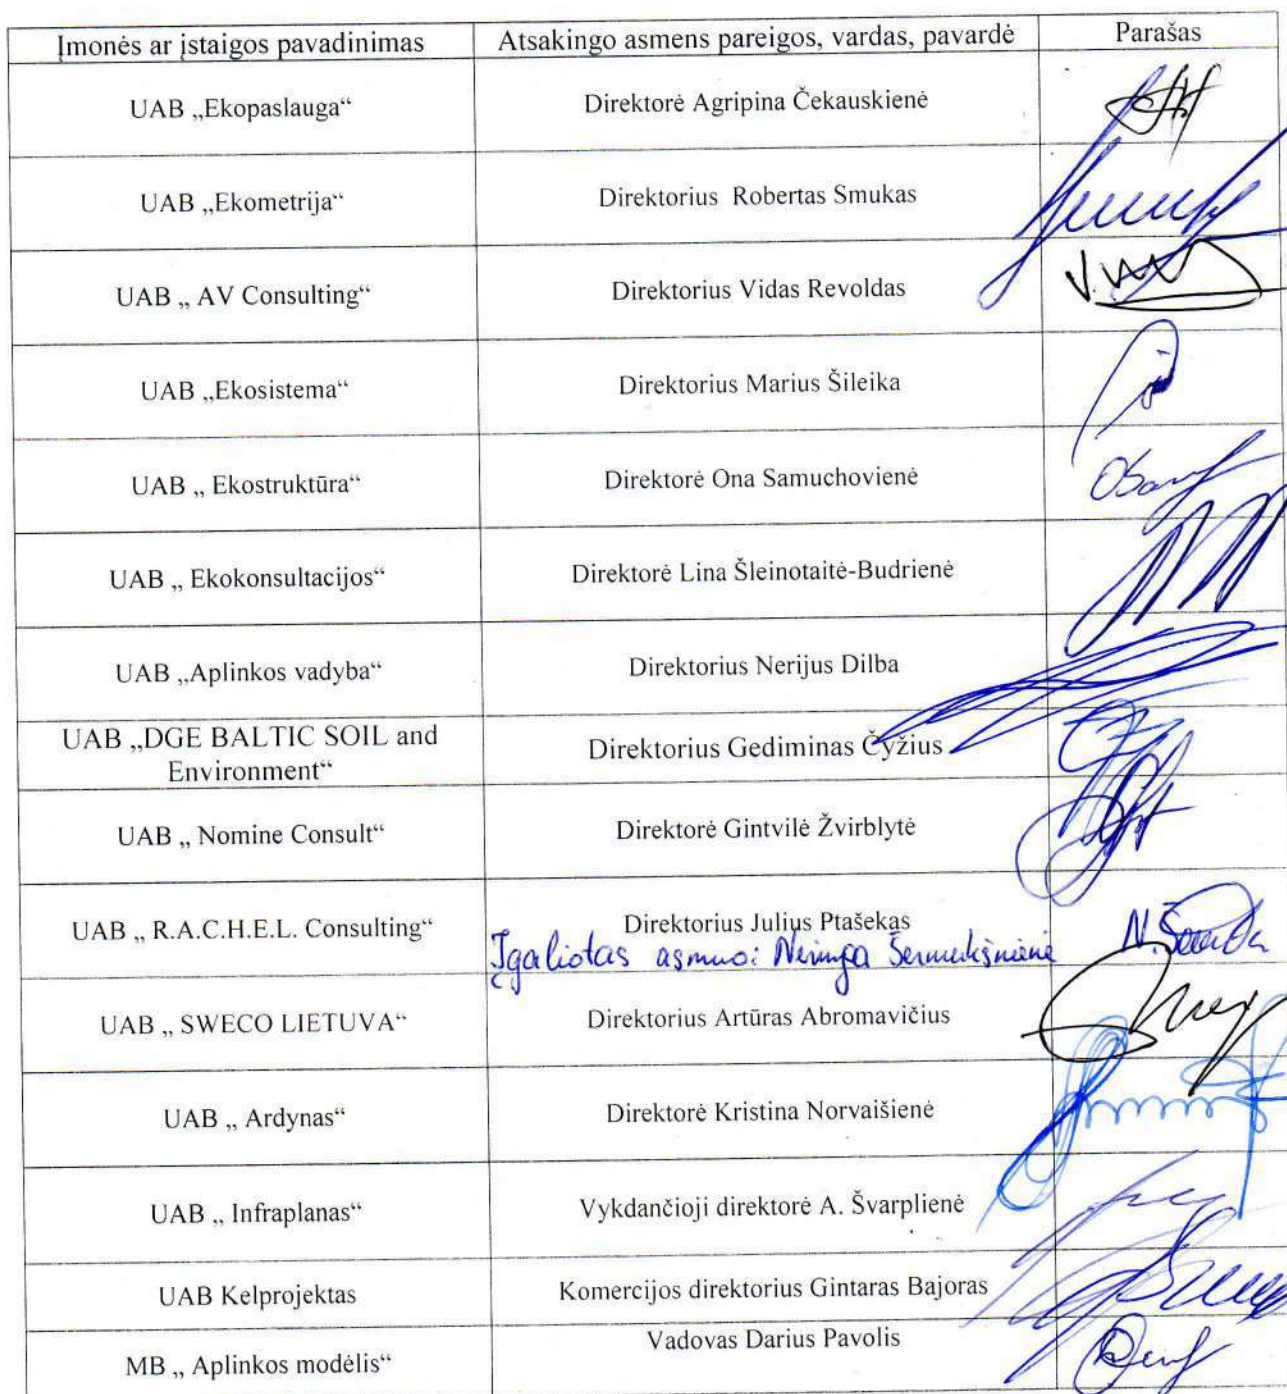 Įmonės ar įstaigos pavadinimas Atsakingo asmens pareigos, vardas, pavardė Parašas
UAB „Ekopaslauga“ Direktorė Agripina Čekauskienė
UAB „Ekometrija“ Direktorius Robertas Smukas
UAB „ AV Consulting“ Direktorius Vidas Revoldas
UAB „Ekosistema“ Direktorius Marius Šileika
UAB „ Ekostruktūra“ Direktorė Ona Samuchovienė
UAB „ Ekokonsultacijos“ Direktorė Lina Šleinotaitė-Budrienė
UAB „Aplinkos vadyba“ Direktorius Nerijus Dilba
UAB „DGE BALTIC SOIL and
Environment“ Direktorius Gediminas Čyžius
UAB „ Nomine Consult“ Direktorė Gintvilė Žvirblytė
UAB „ R.A.C.H.E.L. Consulting“ Direktorius Julius Ptašekas
Įgaliotas asmuo: Neringa Šermukšnienė
UAB „ SWECO LIETUVA“ Direktorius Artūras Abromavičius
UAB „ Ardynas“ Direktorė Kristina Norvaišienė
UAB „ Infraplanas“ Vykdančioji direktorė A. Švarplienė
UAB Kelprojektas Komercijos direktorius Gintaras Bajoras
MB „ Aplinkos modėlis“ Vadovas Darius Pavolis